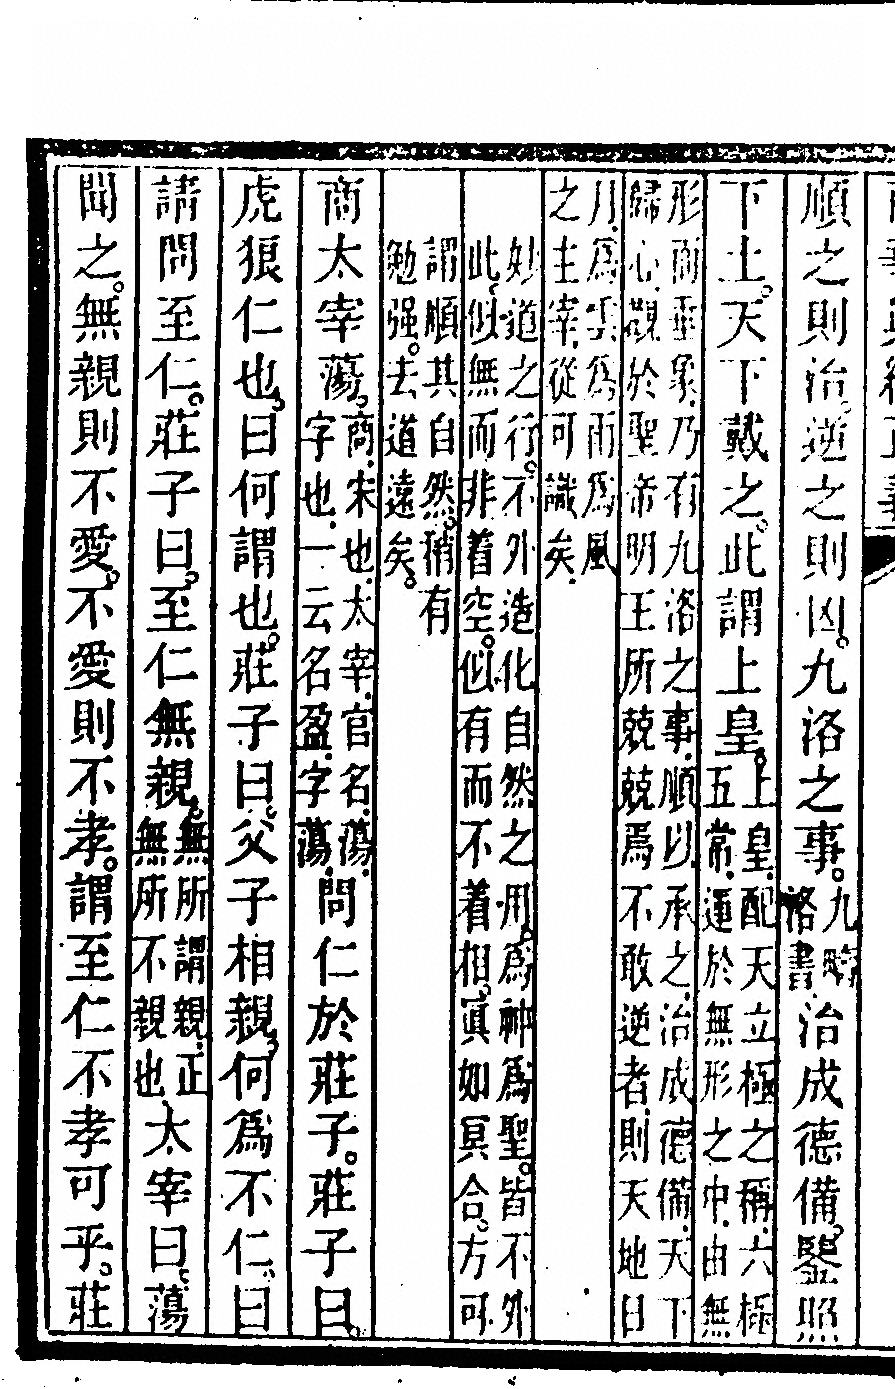 順之則治。逆之則凶。九洛之事。九疇洛書.治成德備。鑒照
下土。天下戴之。此謂上皇。上皇.配天立極之稱.六極
五常.運於無形之中.由無
形而垂象.乃有九洛之事.順以承之.治成德備.天下
歸心.觀於聖帝明王.所兢兢焉不敢逆者.則天地日
月.爲雲爲雨爲風
之主宰.從可識矣.
妙道之行。不外造化自然之用。爲神爲聖。皆不外
此。似無而非着空。似有而不着相。真如冥合。方可
謂順其自然。稍有
勉强。去道遠矣。
商太宰蕩。商.宋也.太宰.官名.蕩.字也.一云名盈.字蕩.問仁於莊子。莊子曰。
虎狼仁也。曰何謂也。莊子曰。父子相親。何爲不仁。曰
請問至仁。莊子曰。至仁無親。無所謂親.正無所不親也.太宰曰。蕩
聞之。無親則不愛。不愛則不孝。謂至仁不孝可乎。莊